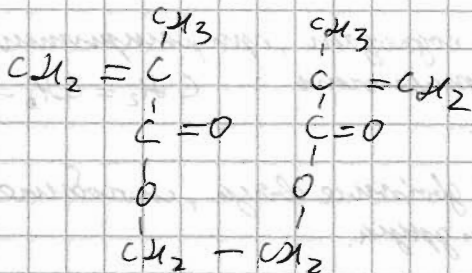 CH3 CH3
CH2 = C C = CH2
C = O C = O
O O
CH2 - CH2